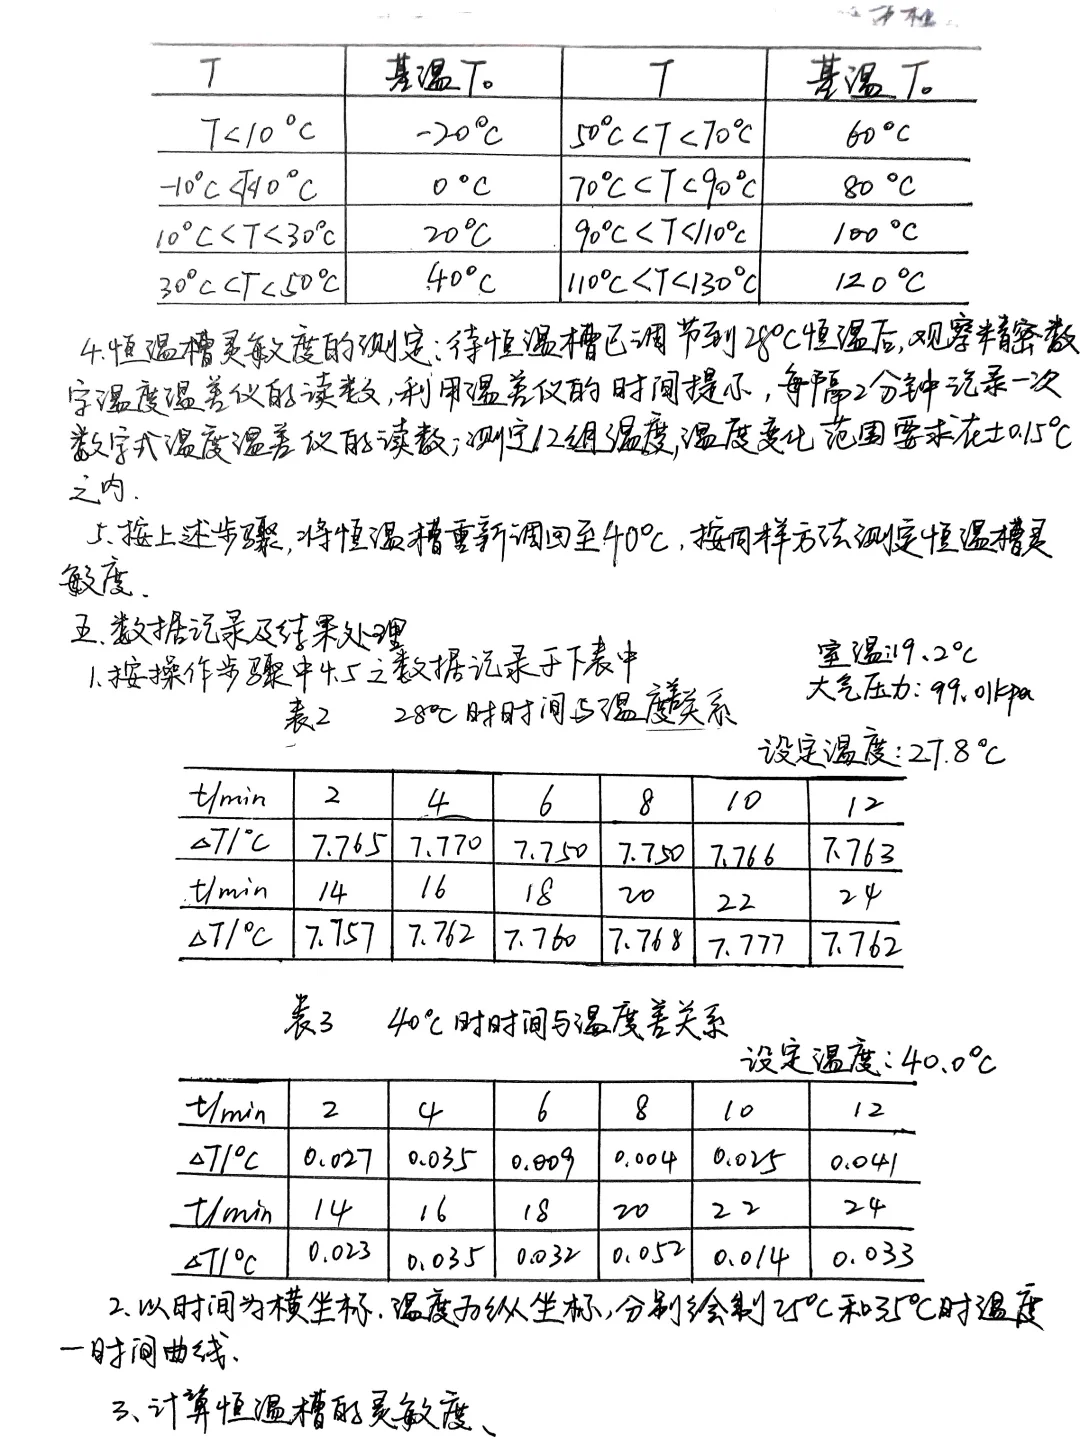 T 基温 T₀ T 基温 T₀
T<10°C -20°C 50°C<T<70°C 60°C
-10°C<T<10°C 0°C 70°C<T<90°C 80°C
10°C<T<30°C 20°C 90°C<T<110°C 100°C
30°C<T<50°C 40°C 110°C<T<130°C 120°C
4.恒温槽灵敏度的测定:待恒温槽已调节到28°C恒温后,观察精密数
字温度温差仪的读数,利用温差仪的时间提示,每隔2分钟记录一次
数字式温度温差仪的读数,测定12组温度,温度变化范围要求在±0.15°C
之内.
5.按上述步骤,将恒温槽重新调回至40°C,按同样方法测定恒温槽灵
敏度.
五.数据记录及结果处理
室温:19.2°C
1.按操作步骤中4.5之数据记录于下表中
大气压力:99.01kpa
表2 28°C时时间与温度差关系
设定温度:27.8°C
t/min 2 4 6 8 10 12
△T/°C 7.765 7.770 7.750 7.750 7.766 7.763
t/min 14 16 18 20 22 24
△T/°C 7.757 7.762 7.760 7.768 7.777 7.762
表3 40°C时时间与温度差关系
设定温度:40.0°C
t/min 2 4 6 8 10 12
△T/°C 0.027 0.035 0.009 0.004 0.025 0.041
t/min 14 16 18 20 22 24
△T/°C 0.023 0.035 0.032 0.052 0.014 0.033
2.以时间为横坐标.温度为纵坐标,分别绘制25°C和35°C时温度
一时间曲线.
3、计算恒温槽的灵敏度、